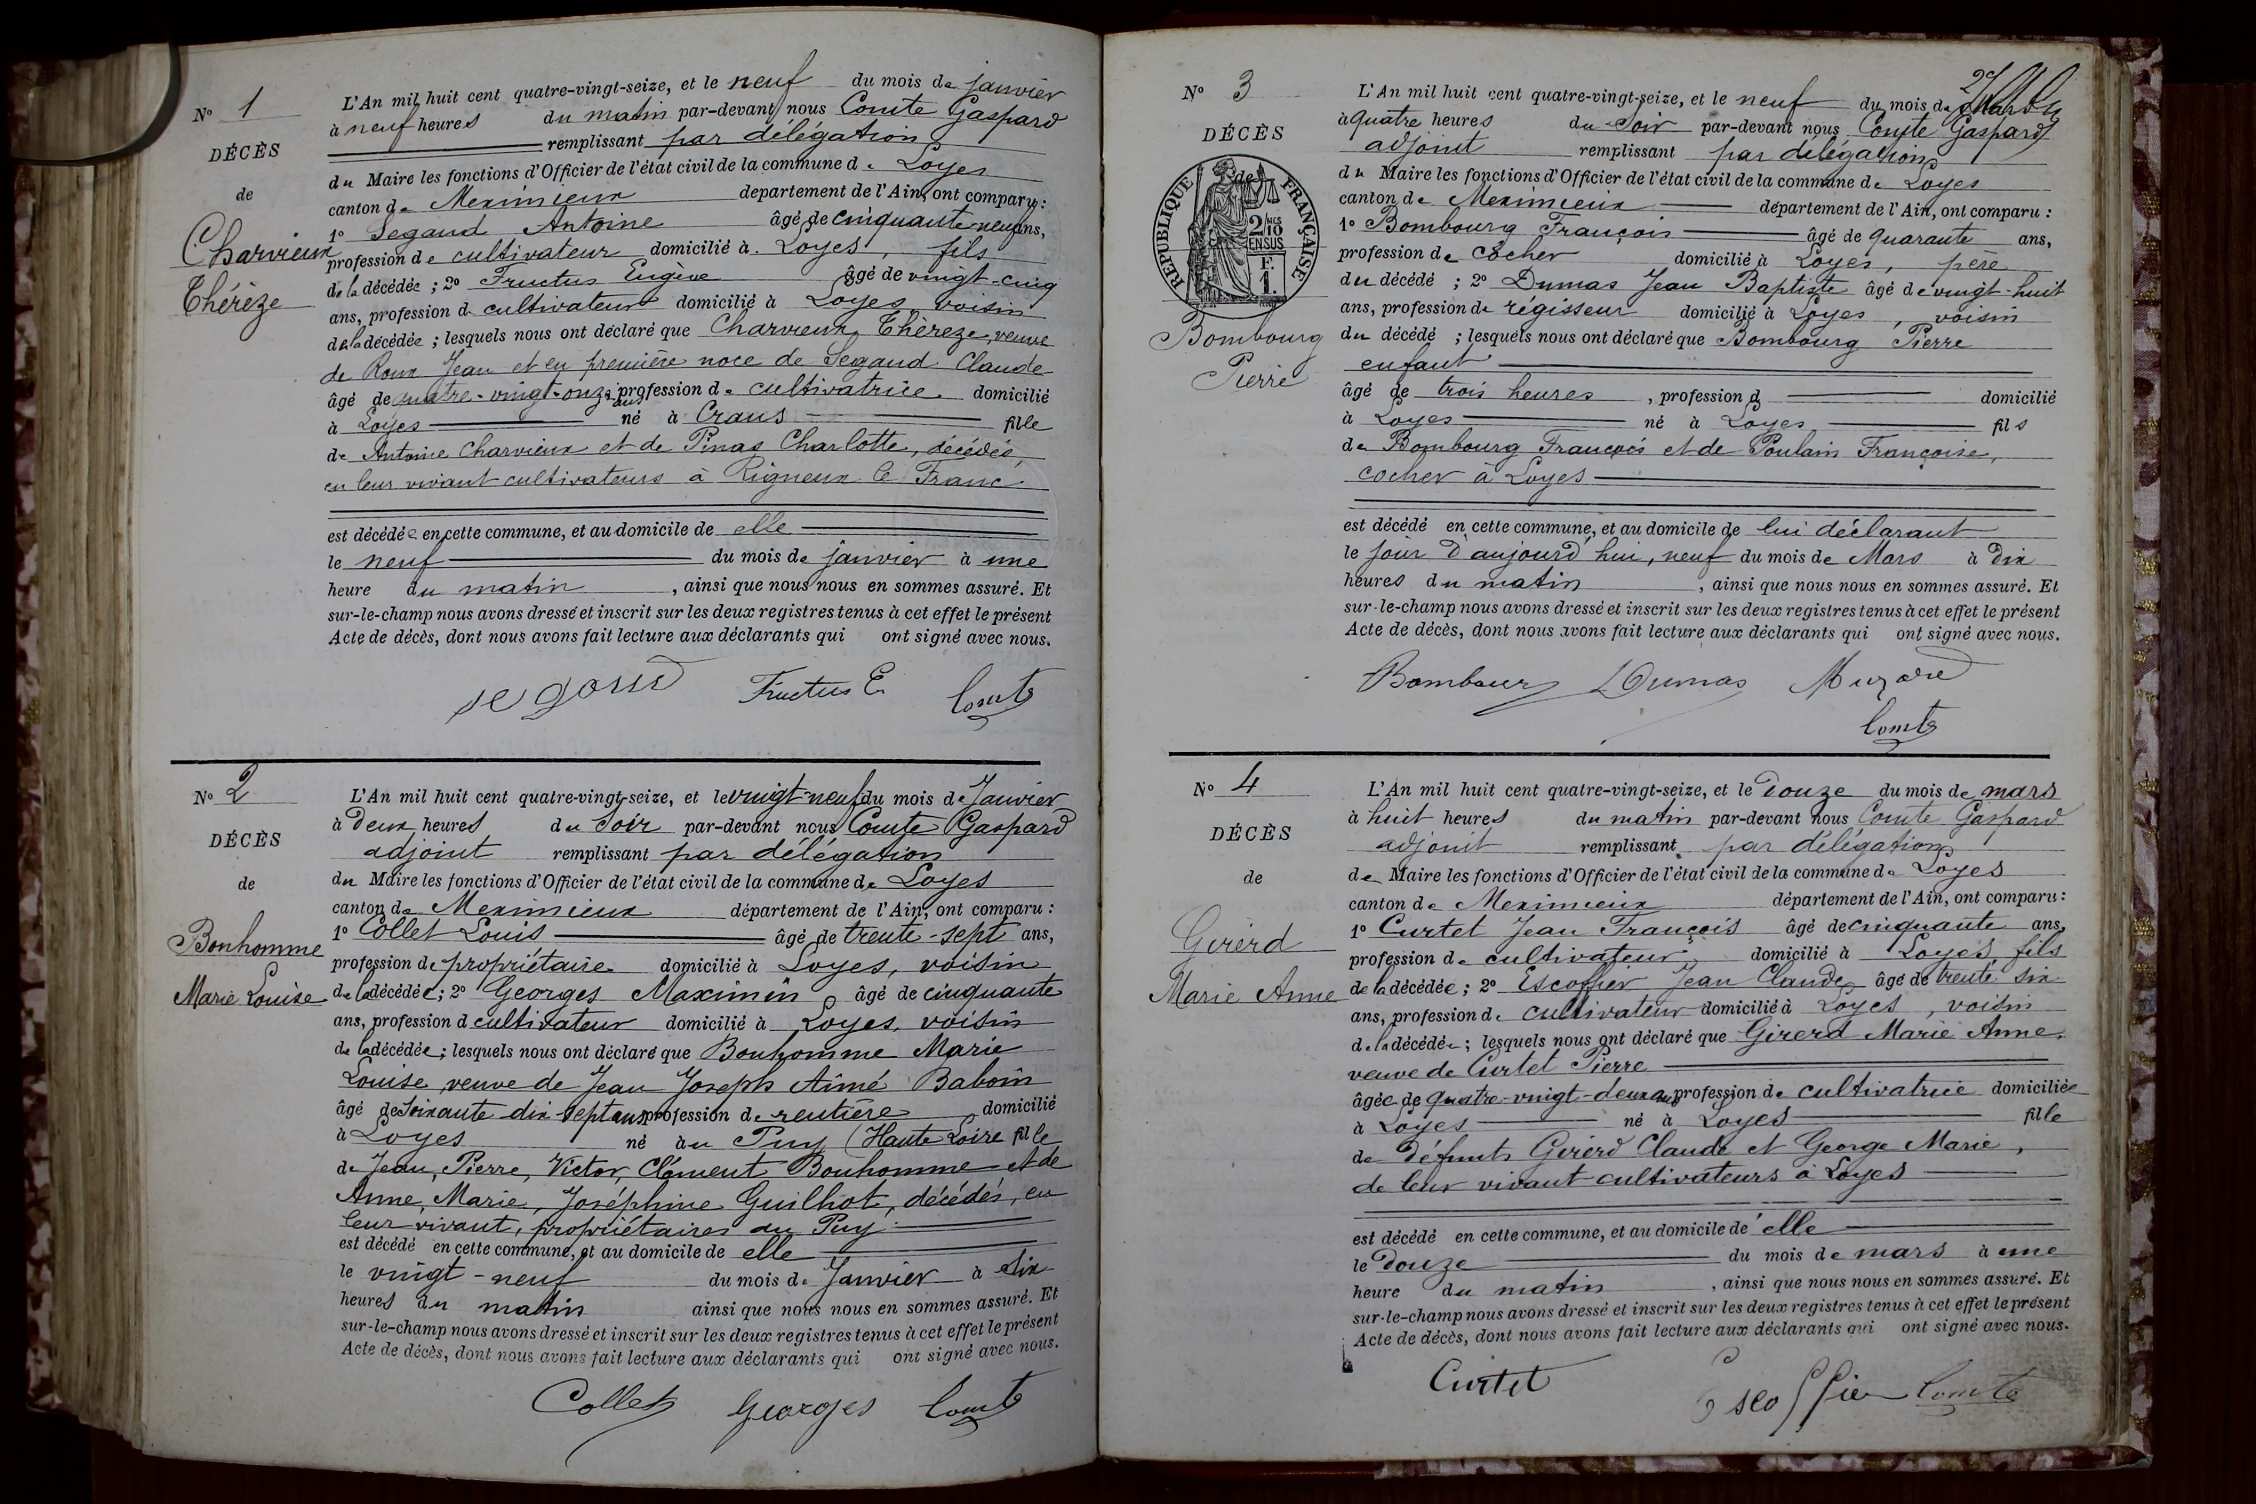 N° 1
DÉCÈS
de
Charvieux
Thérèze
L'An mil huit cent quatre-vingt-seize, et le neuf du mois de janvier
à neuf heures du matin par-devant nous Comte Gaspard
remplissant par délégation
du Maire les fonctions d'Officier de l'état civil de la commune de Loyes
canton de Meximieux département de l'Ain, ont comparu :
1° Segaud Antoine âgé de cinquante neuf ans,
profession de cultivateur domicilié à Loyes, fils
de la décédée ; 2° Fructus Eugène âgé de vingt-cinq
ans, profession de cultivateur domicilié à Loyes, voisin
de la décédée ; lesquels nous ont déclaré que Charvieux Thèreze, veuve
de Roux Jean et en première noce de Segaud Claude
âgé de quatre-vingt-onze ans profession de cultivatrice domicilié
à Loyes né à Crans fille
de Antoine Charvieux et de Pinas Charlotte, décédés,
en leur vivant cultivateurs à Rigneux le Franc
est décédée en cette commune, et au domicile de elle
le neuf du mois de janvier à une
heure du matin, ainsi que nous nous en sommes assuré. Et
sur-le-champ nous avons dressé et inscrit sur les deux registres tenus à cet effet le présent
Acte de décès, dont nous avons fait lecture aux déclarants qui ont signé avec nous.
segaud Fructus E. Comte
N° 2
DÉCÈS
de
Bonhomme
Marie Louise
L'An mil huit cent quatre-vingt-seize, et le vingt-neuf du mois de Janvier
à deux heures du soir par-devant nous Comte Gaspard
adjoint remplissant par délégation
du Maire les fonctions d'Officier de l'état civil de la commune de Loyes
canton de Meximieux département de l'Ain, ont comparu :
1° Collet Louis âgé de trente-sept ans,
profession de propriétaire domicilié à Loyes, voisin
de la décédée ; 2° Georges Maximin âgé de cinquante
ans, profession d cultivateur domicilié à Loyes, voisin
de la décédée ; lesquels nous ont déclaré que Bonhomme Marie
Louise veuve de Jean Joseph Aimé Baboin
âgé de soixante dix-sept ans profession de rentière domicilié
à Loyes né au Puy (Haute Loire fille
de Jean, Pierre, Victor, Clément Bonhomme et de
Anne, Marie, Joséphine Guilhot, décédés, en
leur vivant, propriétaires au Puy
est décédé en cette commune, et au domicile de elle
le vingt-neuf du mois de Janvier à dix
heures du matin ainsi que nous nous en sommes assuré. Et
sur-le-champ nous avons dressé et inscrit sur les deux registres tenus à cet effet le présent
Acte de décès, dont nous avons fait lecture aux déclarants qui ont signé avec nous.
Collet Georges Comte
27
N° 3
DÉCÈS
de
RÉPUBLIQUE FRANÇAISE
2 MES
10
EN SUS
F.
1.
Bombourg
Pierre
L'An mil huit cent quatre-vingt-seize, et le neuf du mois de Mars
à quatre heures du soir par-devant nous Comte Gaspard
adjoint remplissant par délégation
du Maire les fonctions d'Officier de l'état civil de la commune de Loyes
canton de Meximieux département de l'Ain, ont comparu :
1° Bombourg François âgé de quarante ans,
profession de cocher domicilié à Loyes, père
du décédé ; 2° Dumas Jean Baptiste âgé de vingt-huit
ans, profession de régisseur domicilié à Loyes, voisin
du décédé ; lesquels nous ont déclaré que Bombourg Pierre
enfant
âgé de trois heures, profession d domicilié
à Loyes né à Loyes fils
de Bombourg François et de Poulain Françoise,
cocher à Loyes
est décédé en cette commune, et au domicile de lui déclarant
le jour d'aujourd'hui, neuf du mois de Mars à dix
heures du matin, ainsi que nous nous en sommes assuré. Et
sur-le-champ nous avons dressé et inscrit sur les deux registres tenus à cet effet le présent
Acte de décès, dont nous avons fait lecture aux déclarants qui ont signé avec nous.
Bombourg Dumas
Comte
N° 4
DÉCÈS
de
Girerd
Marie Anne
L'An mil huit cent quatre-vingt-seize, et le douze du mois de mars
à huit heures du matin par-devant nous Comte Gaspard
adjoint remplissant par délégation
de Maire les fonctions d'Officier de l'état civil de la commune de Loyes
canton de Meximieux département de l'Ain, ont comparu :
1° Curtet Jean François âgé de cinquante ans,
profession de cultivateur domicilié à Loyes fils
de la décédée ; 2° Escoffier Jean Claude âgé de trente six
ans, profession de cultivateur domicilié à Loyes, voisin
de la décédée ; lesquels nous ont déclaré que Girerd Marie Anne
veuve de Curtet Pierre
âgée de quatre-vingt-deux ans profession de cultivatrice domiciliée
à Loyes né à Loyes fille
de défunts Girerd Claude et George Marie,
de leur vivant cultivateurs à Loyes
est décédé en cette commune, et au domicile de elle
le douze du mois de mars à une
heure du matin, ainsi que nous nous en sommes assuré. Et
sur-le-champ nous avons dressé et inscrit sur les deux registres tenus à cet effet le présent
Acte de décès, dont nous avons fait lecture aux déclarants qui ont signé avec nous.
Curtet Escoffier Comte